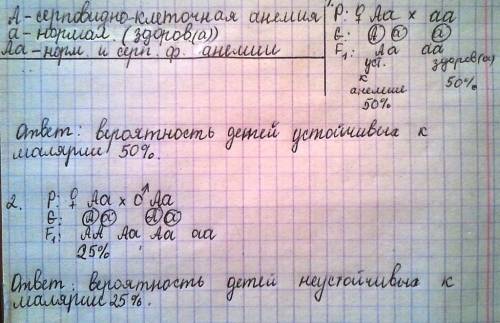 А - серповидно-клеточная анемия
а - нормал. (здоров(а))
Аа - норм. и серп. ф. анемии
1.
Р: ♀ Аа × аа
G: А а а
F₁: Аа аа
уст. здоров(а)
к 50%
анемии
50%
Ответ: вероятность детей устойчивых к
малярии 50%.
2. Р: ♀ Аа × ♂ Аа
G: А а А а
F₁: АА Аа Аа аа
25%
Ответ: вероятность детей неустойчивых к
малярии 25%.